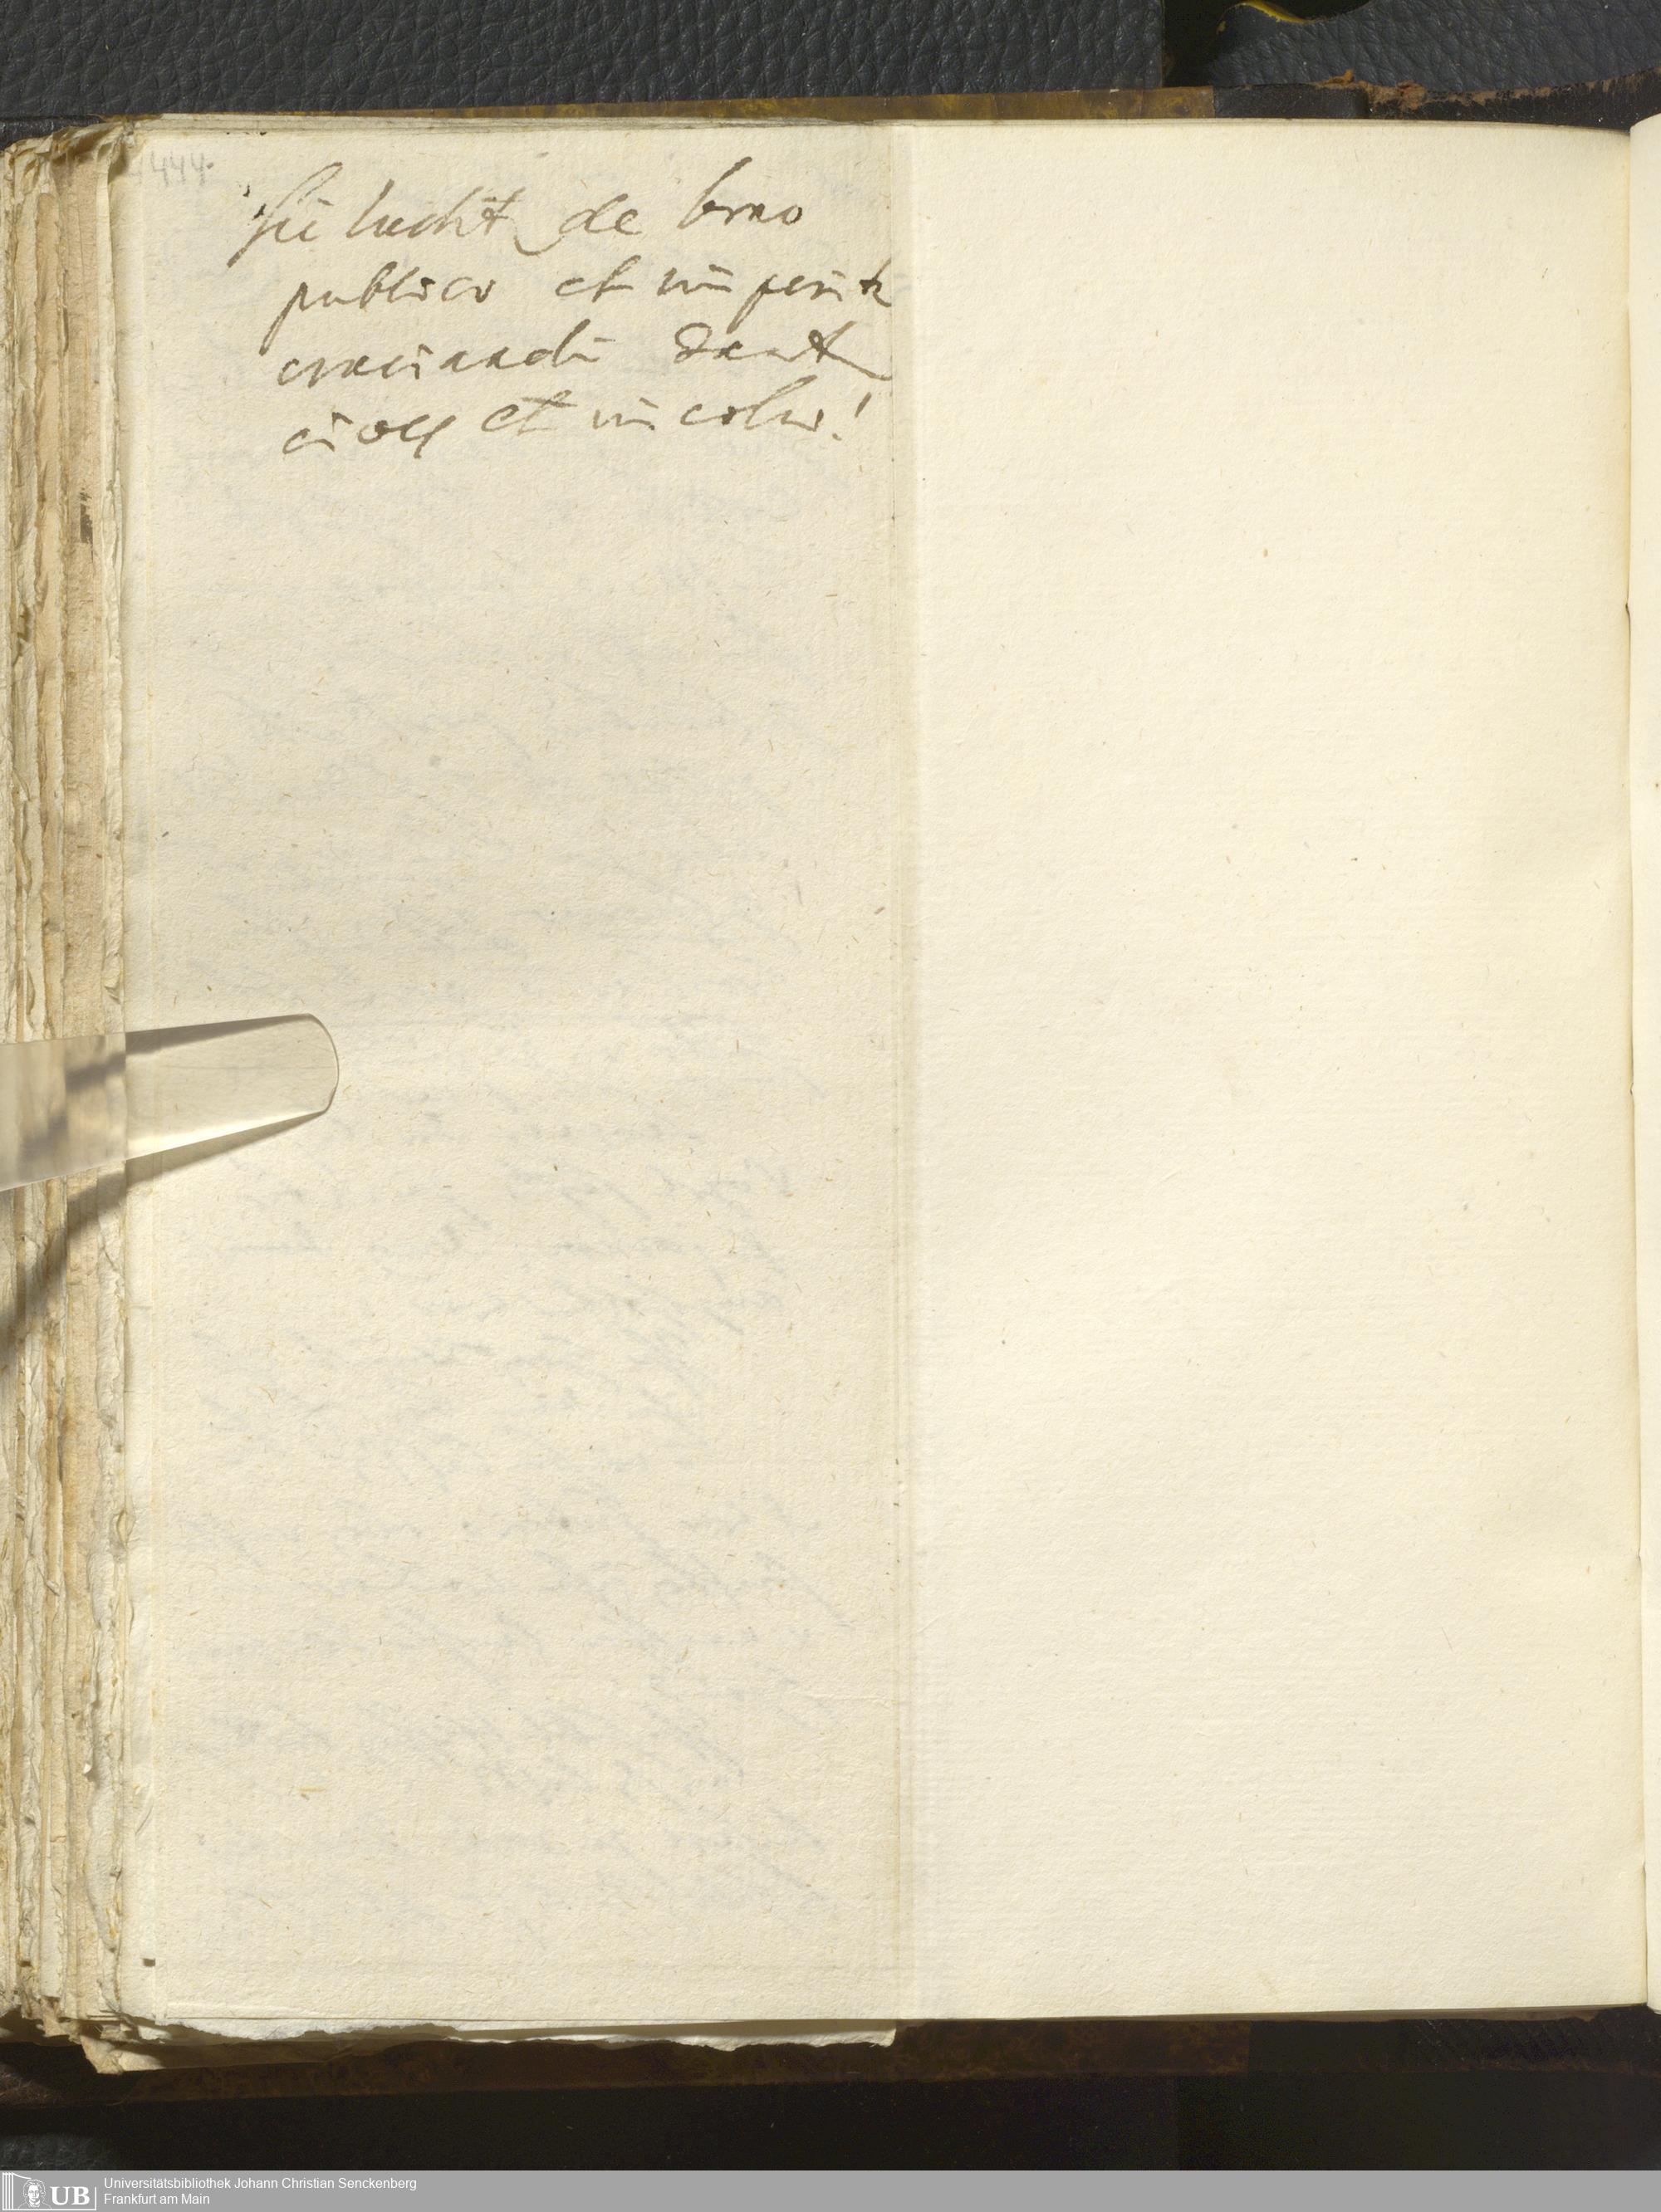 444.
Sic luditur de bono
publico et imperite
cruciandi dantur
cives et incolae!
UB Universitätsbibliothek Johann Christian Senckenberg
Frankfurt am Main